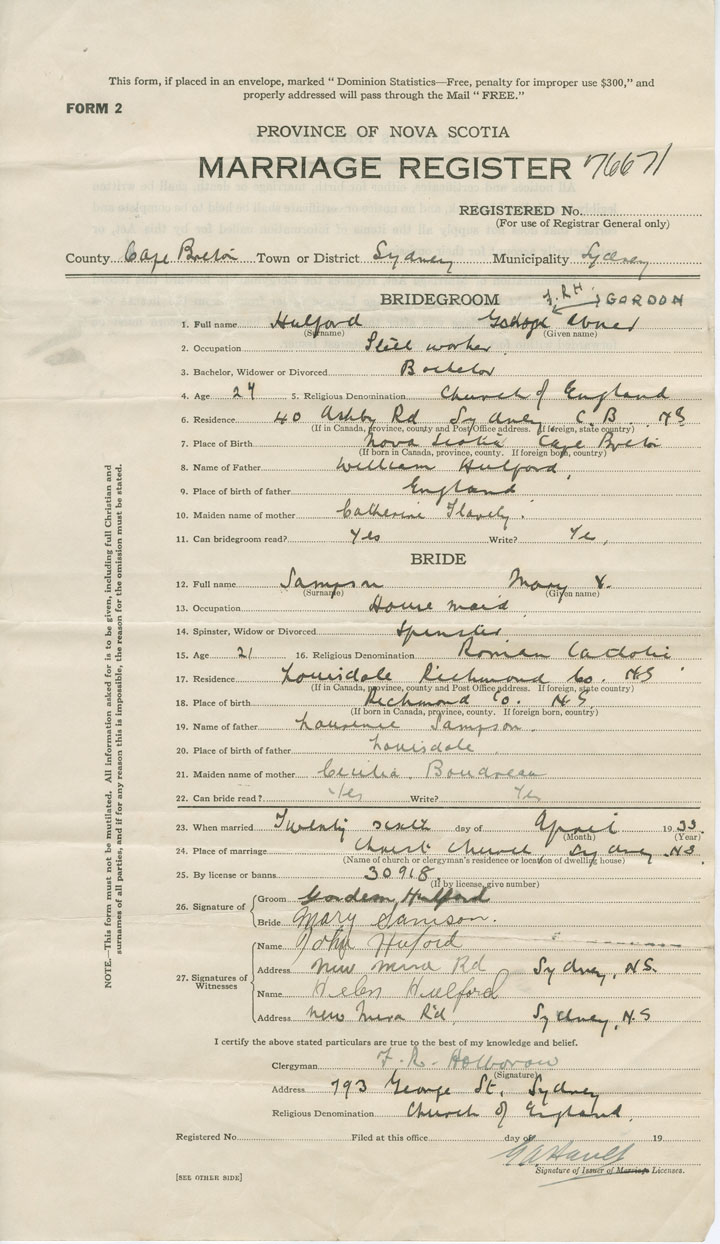 This form, if placed in an envelope, marked “ Dominion Statistics—Free, penalty for improper use $300,” and
properly addressed will pass through the Mail “ FREE.”
FORM 2
PROVINCE OF NOVA SCOTIA
MARRIAGE REGISTER 76671
REGISTERED No.
(For use of Registrar General only)
County Cape Breton Town or District Sydney Municipality Sydney
BRIDEGROOM F.R.H. GORDON
1. Full name Hulford Abner
(Surname) (Given name)
2. Occupation Steel worker
3. Bachelor, Widower or Divorced Bachelor
4. Age 24 5. Religious Denomination Church of England
6. Residence 40 Ashby Rd Sydney C. B. NS
(If in Canada, province, county and Post Office address. If foreign, state country)
7. Place of Birth Nova Scotia Cape Breton
(If born in Canada, province, county. If foreign born, country)
8. Name of Father William Hulford
9. Place of birth of father England
10. Maiden name of mother Catherine
11. Can bridegroom read? Yes Write? Yes
BRIDE
12. Full name Sampson Mary
(Surname) (Given name)
13. Occupation House maid
14. Spinster, Widow or Divorced Spinster
15. Age 21 16. Religious Denomination Roman Catholic
17. Residence Louisdale Richmond Co. NS
(If in Canada, province, county and Post Office address. If foreign, state country)
18. Place of birth Richmond Co. N.S.
(If born in Canada, province, county. If foreign born, country)
19. Name of father Laurence Sampson
20. Place of birth of father Louisdale
21. Maiden name of mother Cecilia Boudreau
22. Can bride read? Yes Write? Yes
23. When married Twenty sixth day of April 1933
(Month) (Year)
24. Place of marriage Christ Church, Sydney N.S.
(Name of church or clergyman's residence or location of dwelling house)
25. By license or banns 30918
(If by license, give number)
26. Signature of Groom Gordon Hulford
Bride Mary Samson.
27. Signatures of Witnesses Name John Huford
Address New Mira Rd Sydney, N.S.
Name Helen Hulford
Address New Mira Rd, Sydney, N.S
I certify the above stated particulars are true to the best of my knowledge and belief.
Clergyman F. R. Holborow
(Signature)
Address 793 George St. Sydney
Religious Denomination Church of England
Registered No. Filed at this office day of 19
Signature of Issuer of Marriage Licenses.
[SEE OTHER SIDE]
NOTE.—This form must not be mutilated. All information asked for is to be given, including full Christian and
surnames of all parties, and if for any reason this is impossible, the reason for the omission must be stated.